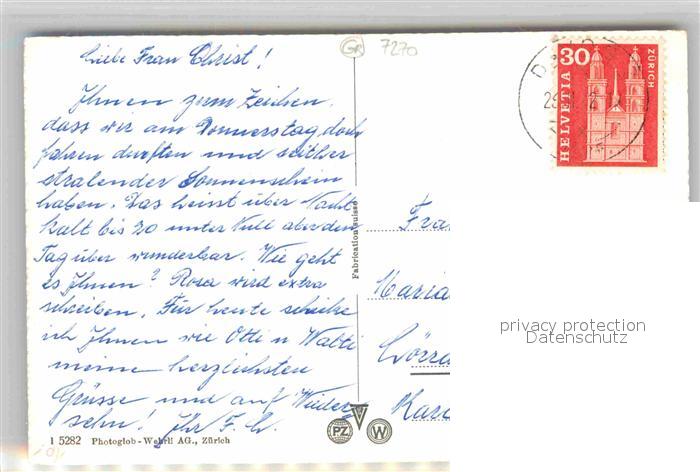 GR 7270
Liebe Frau Christ!
Ihnen zum Zeichen,
dass wir am Donnerstag doch
fahren durften und seither
stralender Sonnenschein
haben. Das heisst über Nacht
kalt bis 20 unter Null aber den
Tag über wunderbar. Wie geht
es Ihnen? Rosa wird extra
schreiben. Für heute schicke
ich Ihnen wie Otti u Walti
meine herzlichsten
Grüsse und auf Wieder
sehn! Ihr F. W.
1 5282 Photoglob-Wehrli AG., Zürich
PZ W
Fabrication suisse
Frau
Maria
Lörra
30
HELVETIA
ZÜRICH
privacy protection
Datenschutz